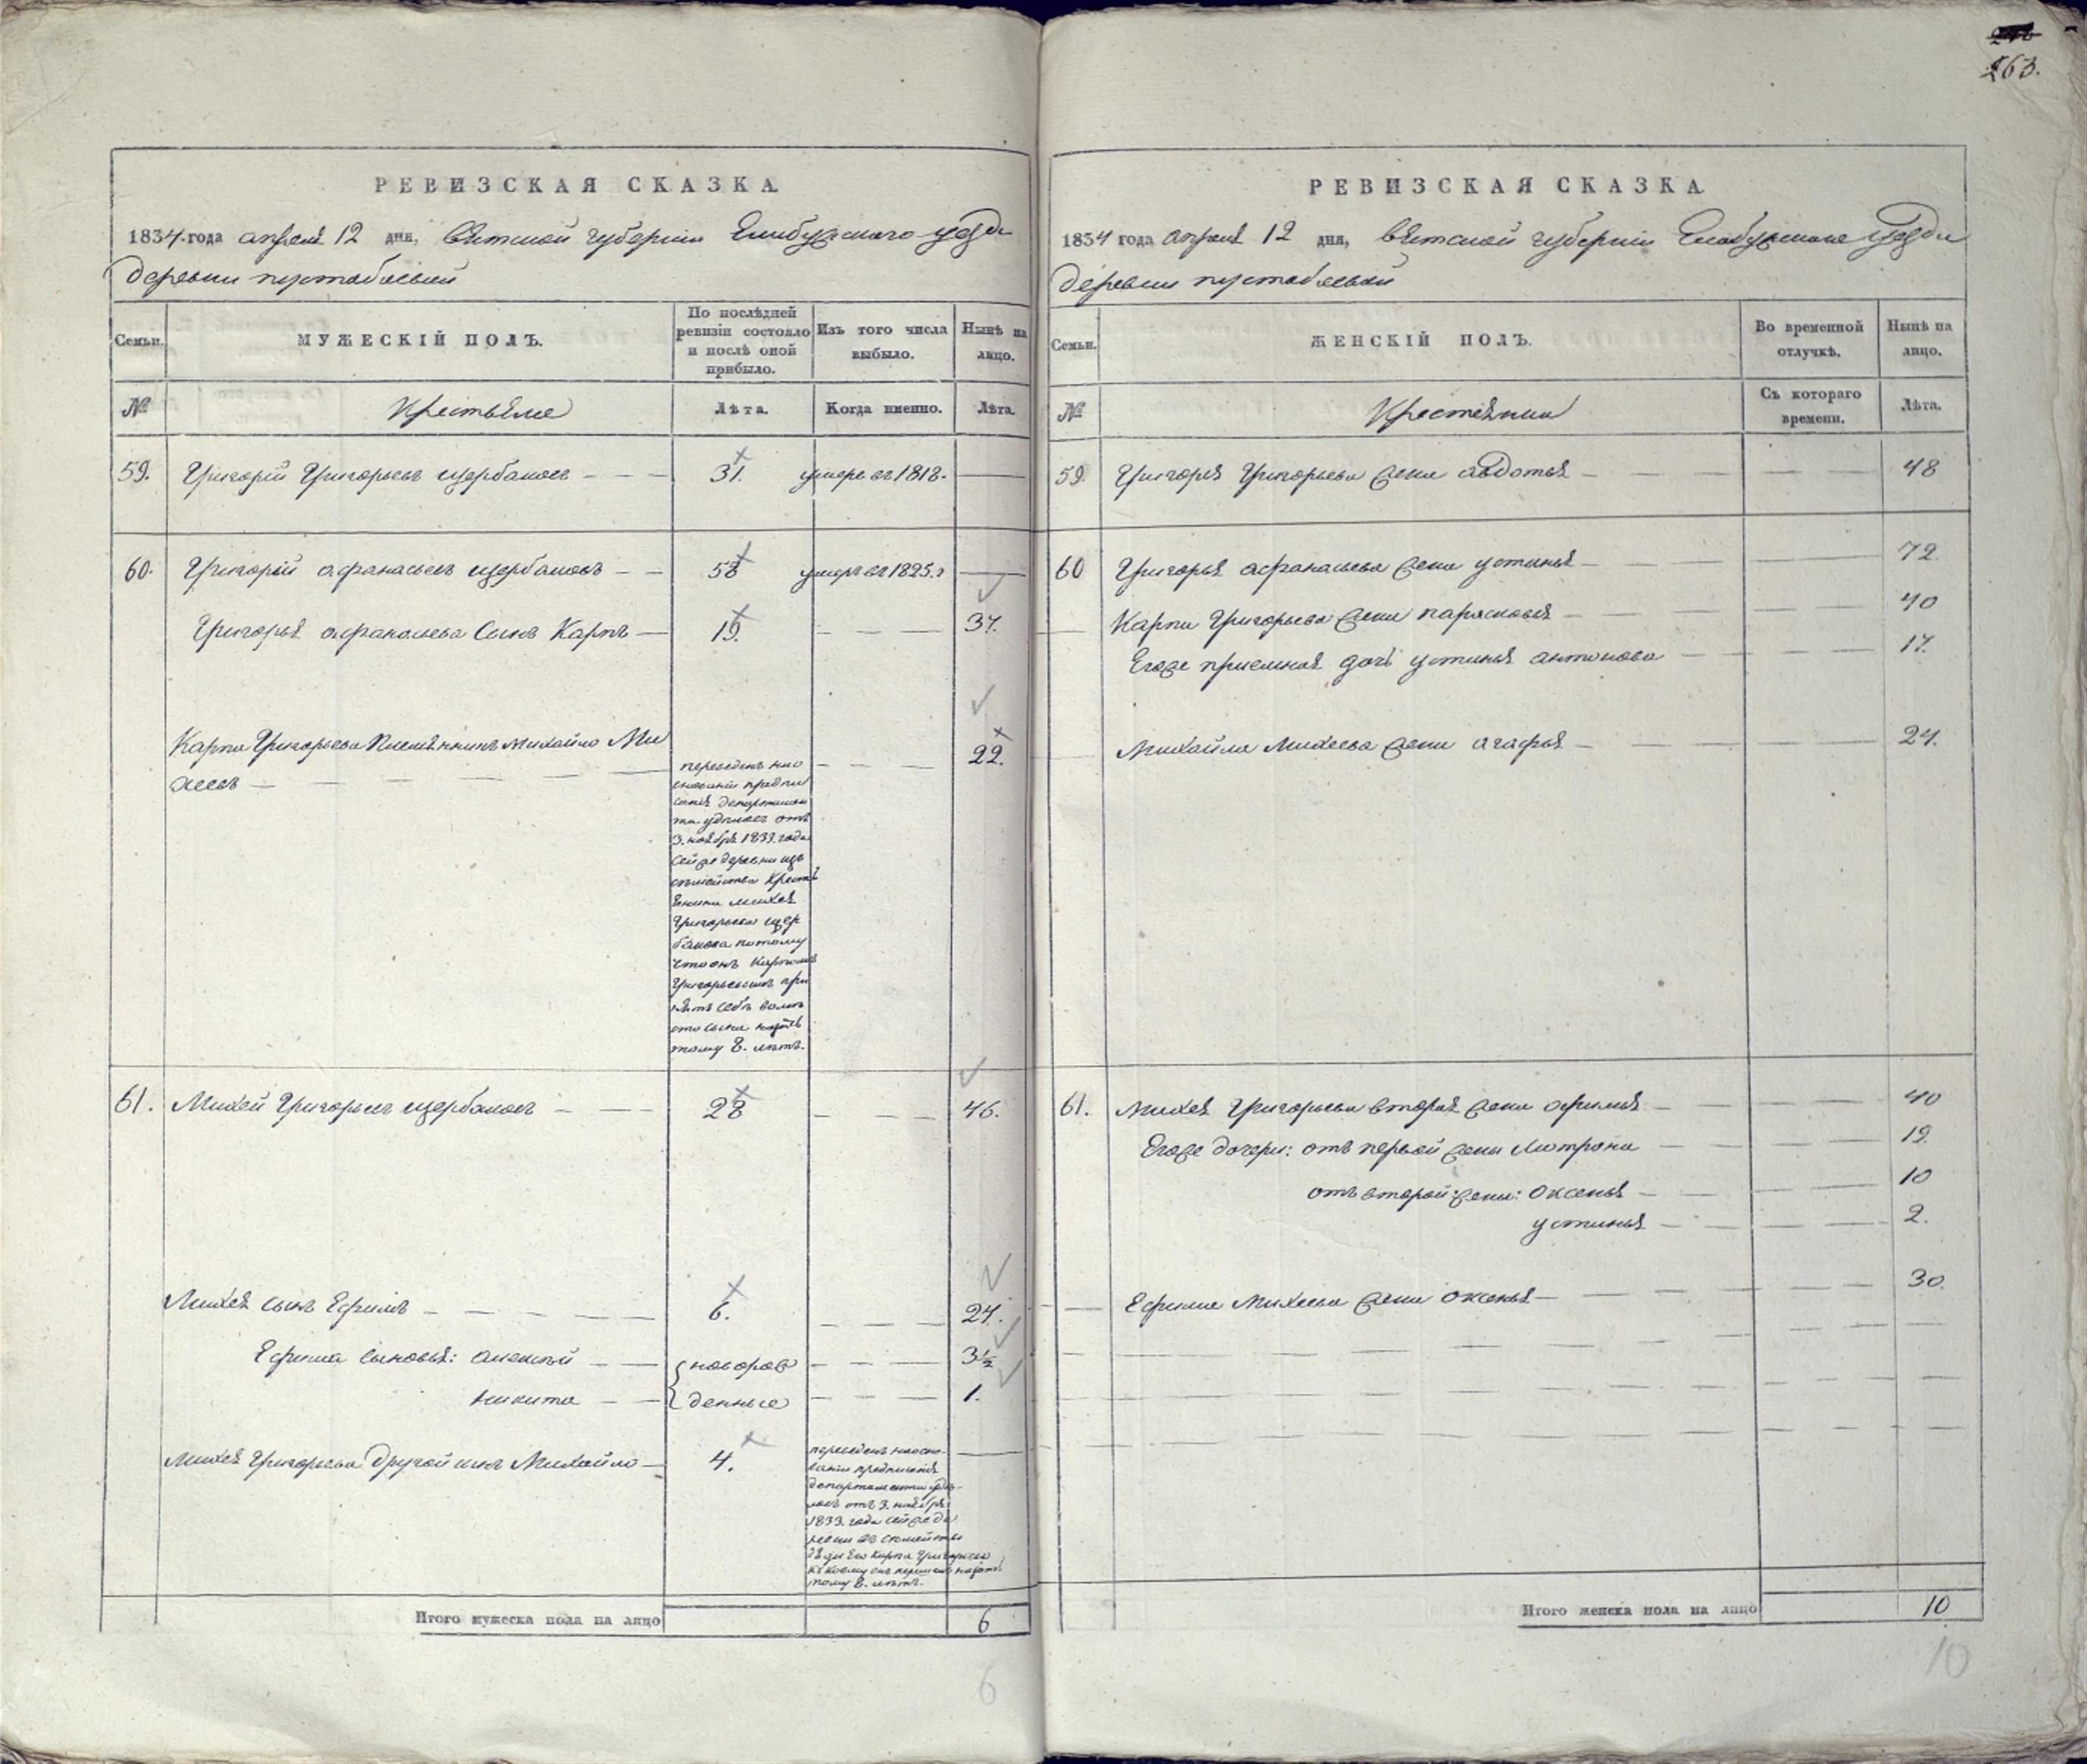 263.
РЕВИЗСКАЯ СКАЗКА.
1834 года апреля 12 дня, Вятской губернии Елабужского уезда
деревни пустобаевой
Семьи.
МУЖЕСКІЙ ПОЛЪ.
По послѣдней ревизіи состояло и послѣ оной прибыло.
Изъ того числа выбыло.
Нынѣ на лицо.
№
Крестьяне
Лѣта.
Когда именно.
Лѣта.
59. Григорій Григорьевъ щербаковъ 31. умеръ въ 1818.
60. Григорій афанасьевъ щербаковъ 58 умеръ въ 1825.г
Григорья афанасьева Сынъ Карпъ 19. 37.
Карпа Григорьева Племянникъ Михайло Ми
хеевъ 22.
переведенъ на о
сновании предпи
сания Департамен
та уделовъ отъ
3. ноября 1833. года
сей же деревни изъ
семейства Крестья
янина михея
Григорьева щер
бакова потому
что онъ Карпомъ
Григорьевымъ при
нятъ себѣ вместо
сына назадъ
тому 8. летъ.
61. Михей Григорьевъ щербаковъ 28 46.
Михея сынъ Ефимъ 6. 24.
Ефима сыновья: алексѣй новорож 3½
никита денные 1.
Михея Григорьева Другой сынъ Михайло 4.
переведенъ на осно-
вании предписания
департамента уде-
ловъ отъ 3. ноября
1833. года сей же де
ревни въ семейство
дяди Его Карпа Григорьева
къ коему онъ перешелъ назадъ
тому 8. летъ.
Итого мужеска пола на лицо 6
6
РЕВИЗСКАЯ СКАЗКА.
1834 года апреля 12 дня, вятской губернии Елабужского уезда
деревни пустобаевой
Семьи.
ЖЕНСКІЙ ПОЛЪ.
Во временной отлучкѣ.
Нынѣ на лицо.
№
Крестьянки
Съ котораго времени.
Лѣта.
59. Григорья Григорьева жена авдотья 48
60 Григорья афанасьева жена устинья 72.
Карпа Григорьева жена парасковья 40
Егоже приемная дочь устинья антонова 17.
Михайла Михеева жена агафья 24.
61. михея Григорьева вторая жена афимья 40
Егоже дочери: отъ первой жены Матрона 19.
отъ второй жены: Оксенья 10
устинья 2.
Ефима Михеева жена оксенья 30.
Итого женска пола на лицо 10
10